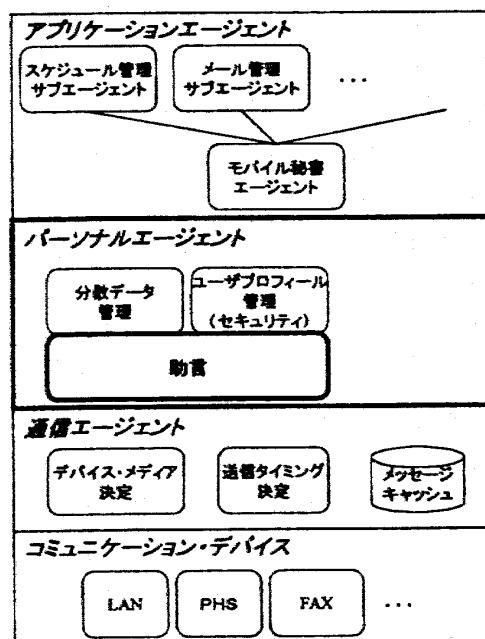 アプリケーションエージェント
スケジュール管理
サブエージェント
メール管理
サブエージェント
...
モバイル秘書
エージェント
パーソナルエージェント
分散データ
管理
ユーザプロフィール
管理
(セキュリティ)
助言
通信エージェント
デバイス・メディア
決定
送信タイミング
決定
メッセージ
キャッシュ
コミュニケーション・デバイス
LAN
PHS
FAX
...